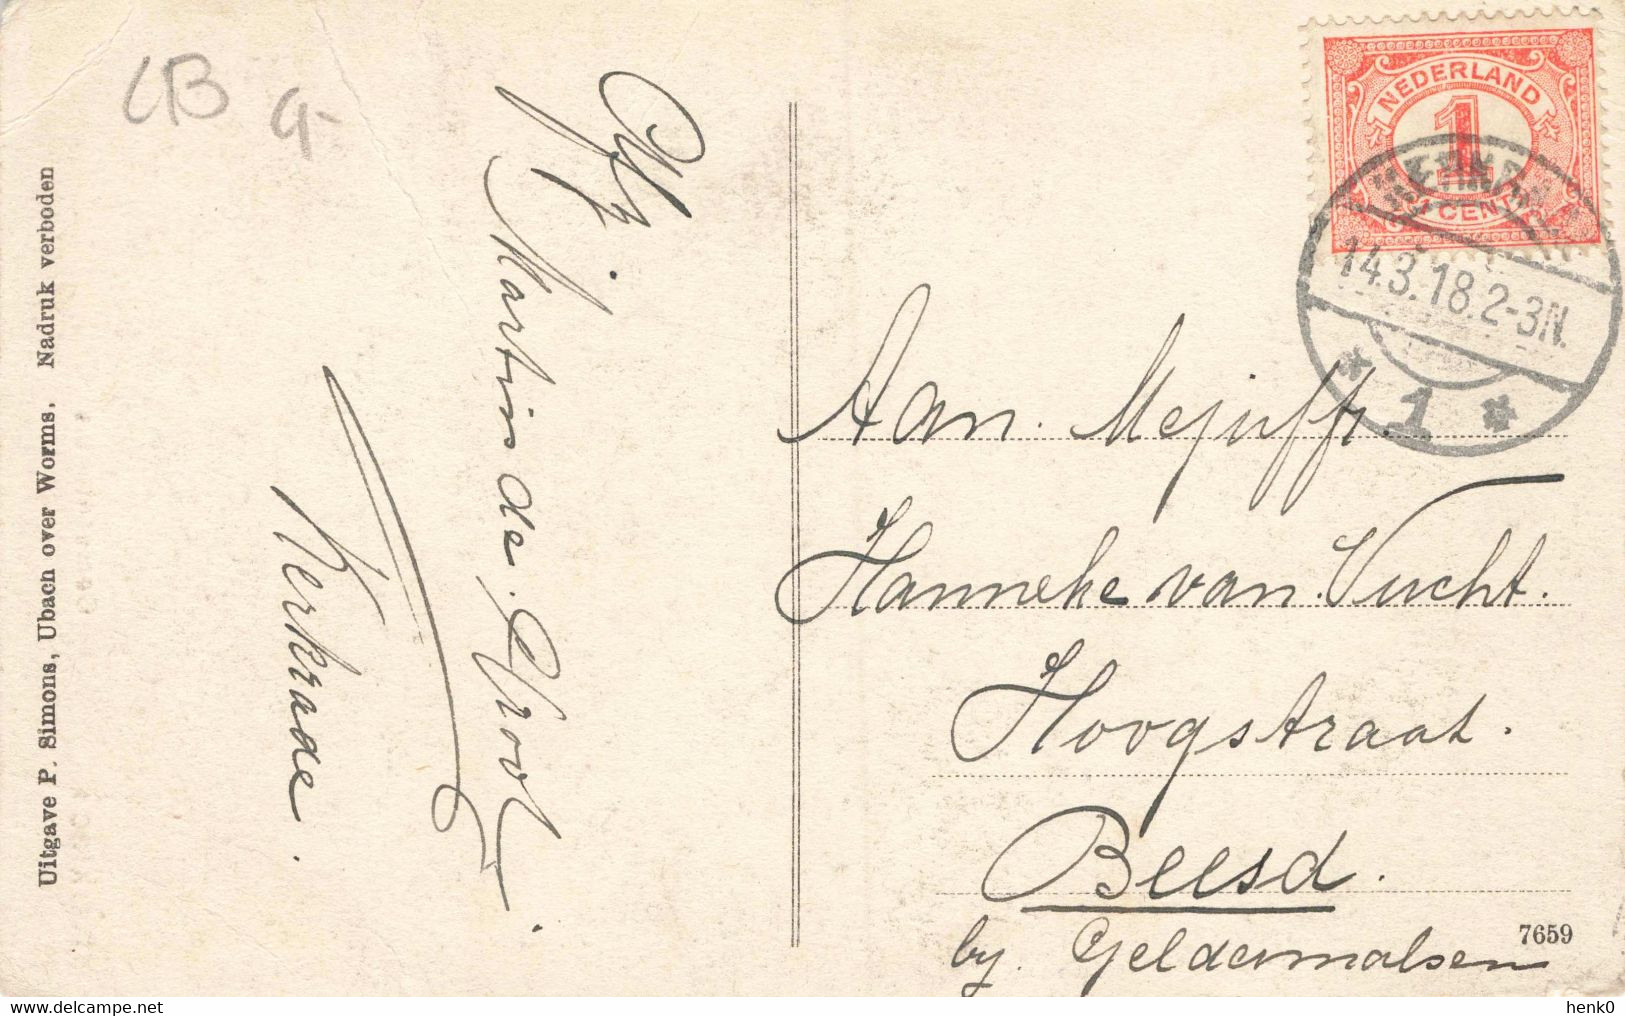 LB
9-
Uitgave P. Simons, Ubach over Worms. Nadruk verboden
Afz.
Martin de Groot.
Kerkrade.
NEDERLAND
1
1 CENT
KERKRADE
14.3.18.2-3N.
* 1 *
Aan. Mejuffr.
Hanneke van Vucht.
Hoogstraat.
Beesd.
by. Geldermalsen
7659
henk0